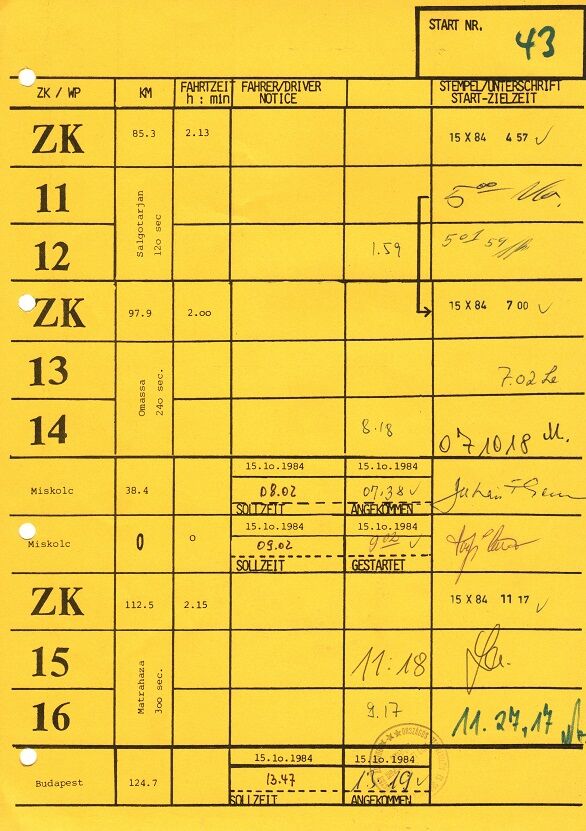 START NR.
43
ZK / WP KM FAHRTZEIT h : min FAHRER/DRIVER NOTICE STEMPEL/UNTERSCHRIFT START-ZIELZEIT
ZK 85.3 2.13 15 X 84 4 57
11 5 00
Salgotarjan 12o sec
12 1.59 5 01 59
ZK 97.9 2.oo 15 X 84 7 00
13 7.02
Omassa 24o sec.
14 8.18 071018
15.1o.1984 15.1o.1984
Miskolc 38.4 08.02 07.38
SOLLZEIT ANGEKOMMEN
15.1o.1984 15.1o.1984
Miskolc 0 o 09.02 9 02
SOLLZEIT GESTARTET
ZK 112.5 2.15 15 X 84 11 17
15 11:18
Matrahaza 3oo sec.
16 9.17 11.27,17
15.1o.1984 15.1o.1984
Budapest 124.7 13.47 13 19
SOLLZEIT ANGEKOMMEN